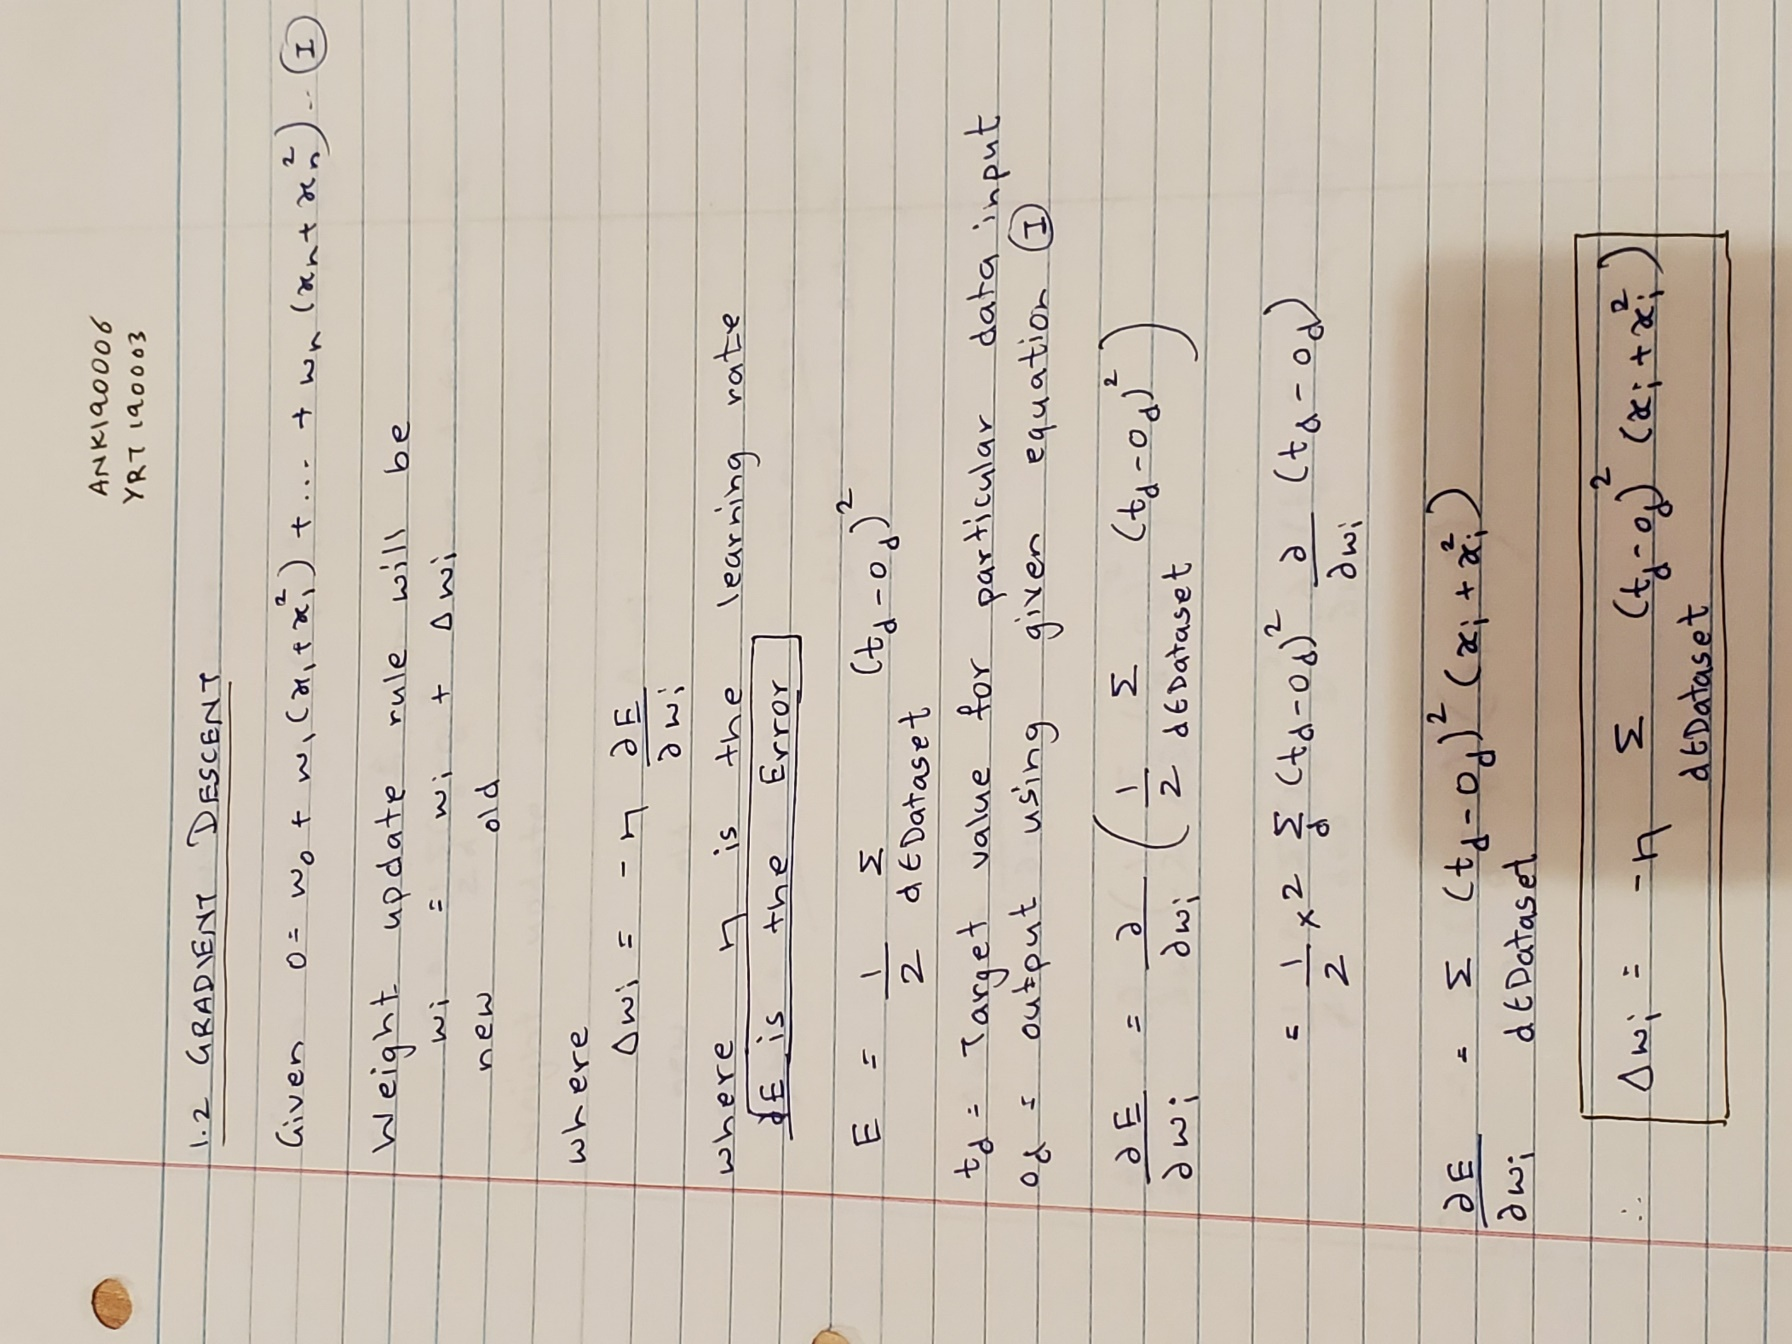 ANK190006
YRT190003
1.2 GRADIENT DESCENT
Given o = w₀ + w₁(x₁ + x₁²) + ... + wₙ(xₙ + xₙ²) .. Ⓘ
Weight update rule will be
wᵢ = wᵢ + Δwᵢ
new old
where
Δwᵢ = -η ∂E/∂wᵢ
where η is the learning rate
E is the Error
E = 1/2 Σ d∈Dataset (t_d - o_d)²
t_d = Target value for particular data input
o_d = output using given equation Ⓘ
∂E/∂wᵢ = ∂/∂wᵢ (1/2 Σ d∈Dataset (t_d - o_d)²)
= 1/2 × 2 Σ_d (t_d - o_d)² ∂/∂wᵢ (t_d - o_d)
∂E/∂wᵢ = Σ d∈Dataset (t_d - o_d)² (xᵢ + xᵢ²)
∴ Δwᵢ = -η Σ d∈Dataset (t_d - o_d)² (xᵢ + xᵢ²)